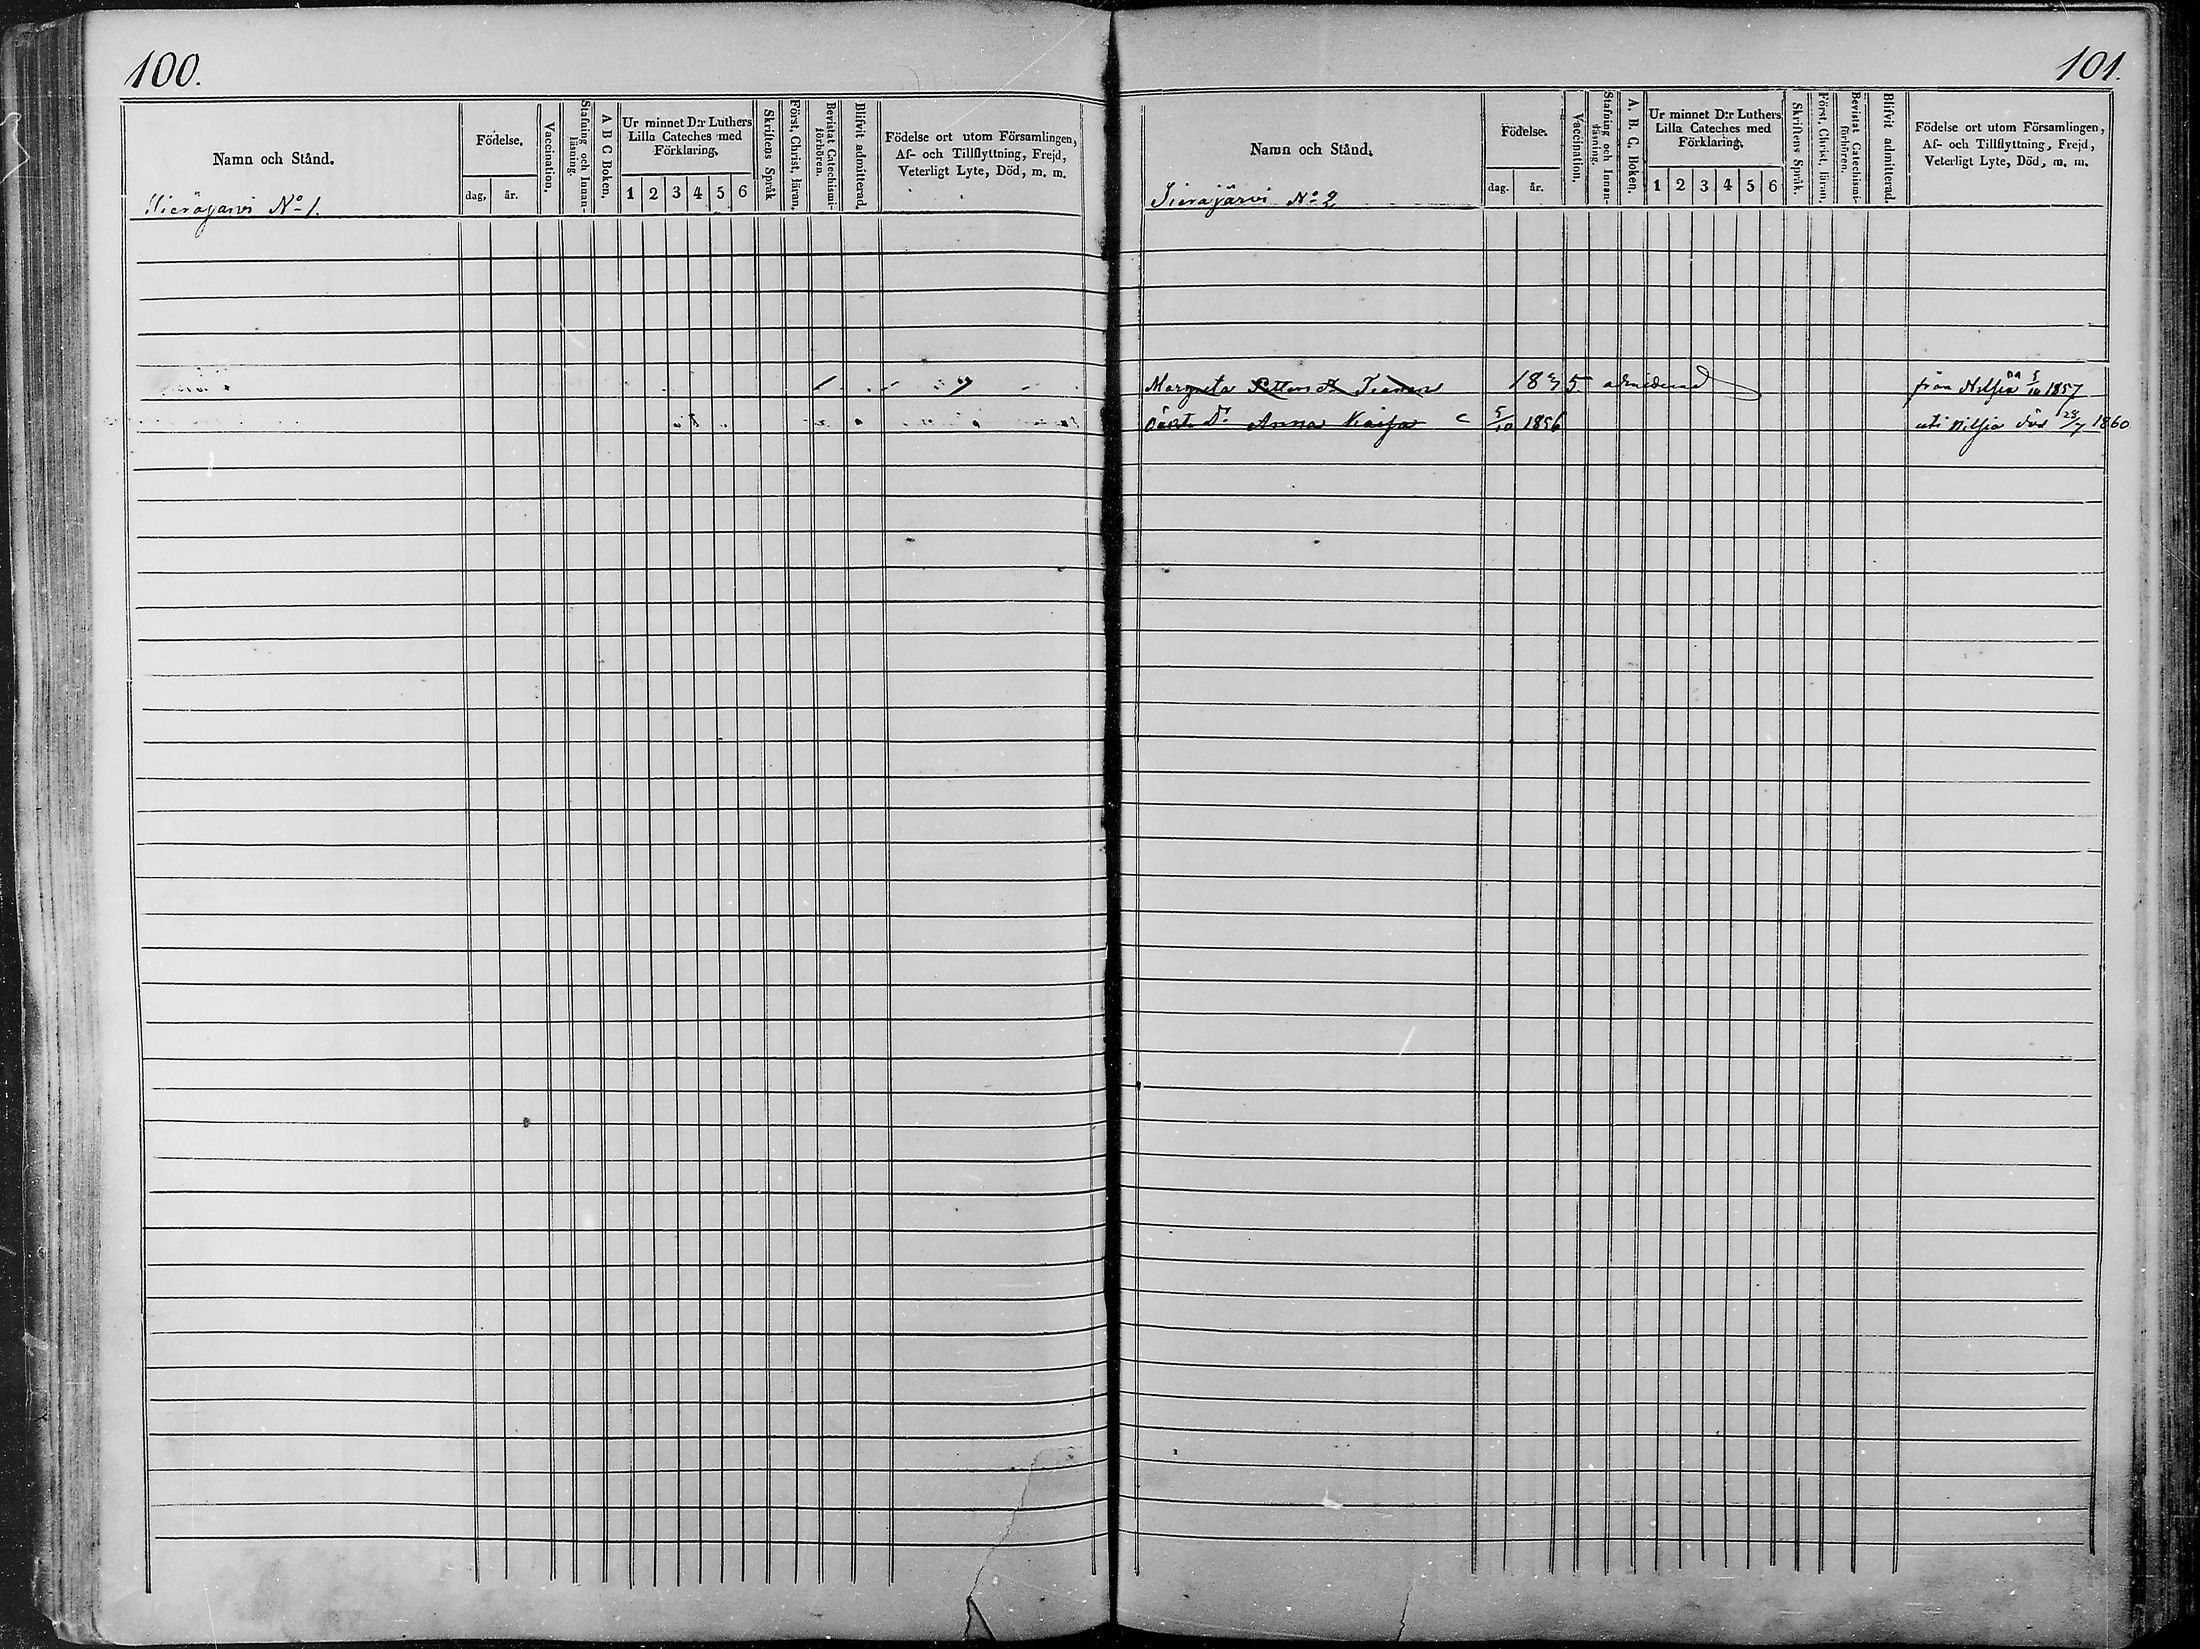 100.
Namn och Stånd.
Födelse.
dag.
år.
Vaccination.
Stafning och Innan-
läsning.
A B C Boken.
Ur minnet D:r Luthers
Lilla Cateches med
Förklaring.
1 2 3 4 5 6
Skriftens Språk
Först. Christ. läran.
Bevistat Catechismi-
förhören.
Blifvit admitterad.
Födelse ort utom Församlingen,
Af- och Tillflyttning, Frejd,
Veterligt Lyte, Död, m. m.
No 1.
101.
Namn och Stånd.
Sierajärvi No 2
Födelse.
dag.
år.
Vaccination.
Stafning och Innan-
läsning.
A. B. C. Boken.
Ur minnet D:r Luthers
Lilla Cateches med
Förklaring.
1 2 3 4 5 6
Skriftens Språk.
Först. Christ. läran.
Bevistat Catechismi-
förhören.
Blifvit admitterad.
Födelse ort utom Församlingen,
Af- och Tillflyttning, Frejd,
Veterligt Lyte, Död, m. m.
Margreta från Nilsiä 1857
Anna Kaisa 5/10 1856 uti Nilsiä död 28/7 1860